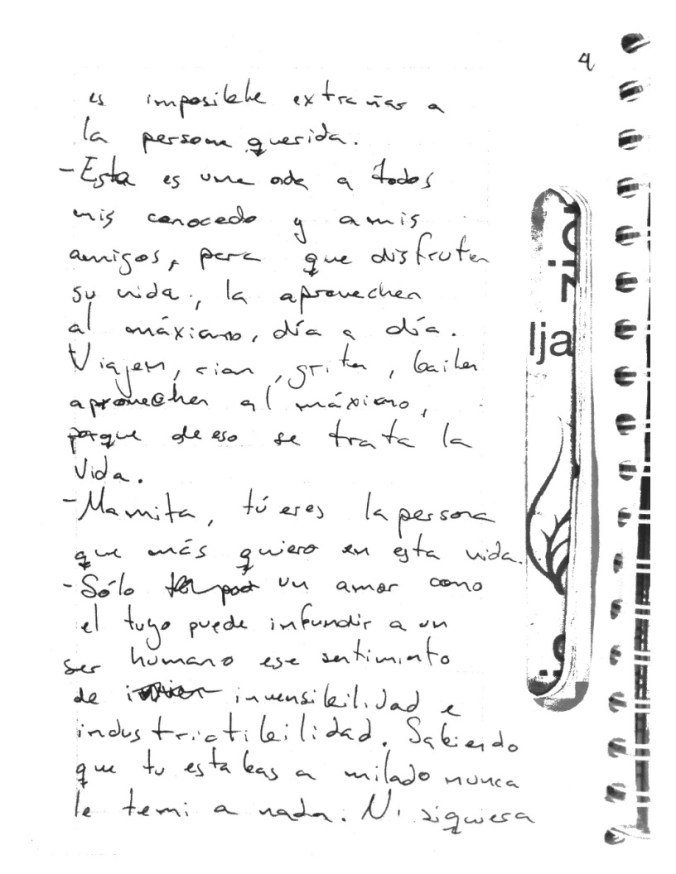 4
es imposible extrañar a
la persona querida.
- Esta es una oda a todos
mis conocedo y a mis
amigos, para que disfruten
su vida, la aprovechen
al máximo, día a día.
Viajen, rian, griten, bailen
aprovechen al máximo,
porque de eso se trata la
vida.
- Mamita, tú eres la persona
que más quiero en esta vida.
- Sólo un amor como
el tuyo puede infundir a un
ser humano ese sentimiento
de invensibilidad e
industrictibilidad. Sabiendo
que tu estabas a milado nunca
le temi a nada. Ni siquiera
lja